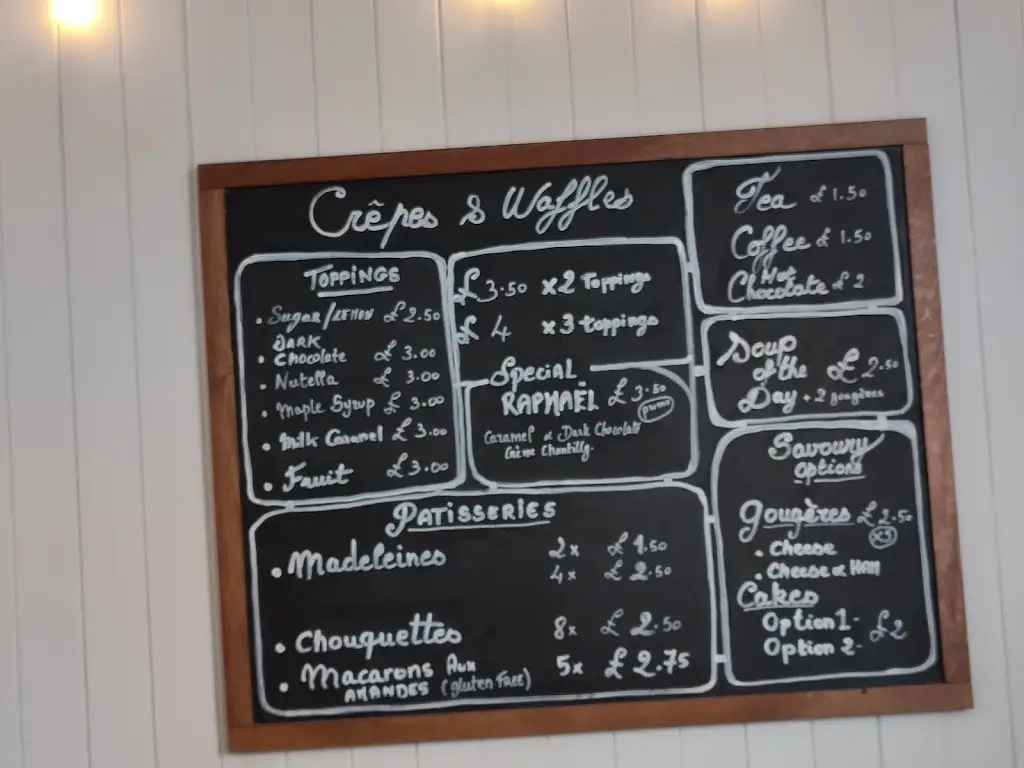 Crêpes & Waffles
TOPPINGS
• Sugar/LEMON £2.50
• DARK
Chocolate £ 3.00
• Nutella £ 3.00
• Maple Syrup £ 3.00
• Milk Caramel £3.00
• Fruit £3.00
£3.50 x2 Toppings
£ 4 x3 toppings
SPECIAL
RAPHAËL £3.50
promo
Caramel & Dark Chocolate
Crème Chantilly.
Tea £1.50
Coffee £ 1.50
Hot
Chocolate £ 2
Soup
of the £2.50
Day + 2 gougères
Savoury
options
Gougères £2.50
x5
• Cheese
• Cheese & HAM
Cakes
Option 1-
Option 2- £2
PATISSERIES
• Madeleines 2x £1.50
4x £2.50
• Chouquettes 8x £2.50
• Macarons Aux 5x £2.75
AMANDES (gluten Free)